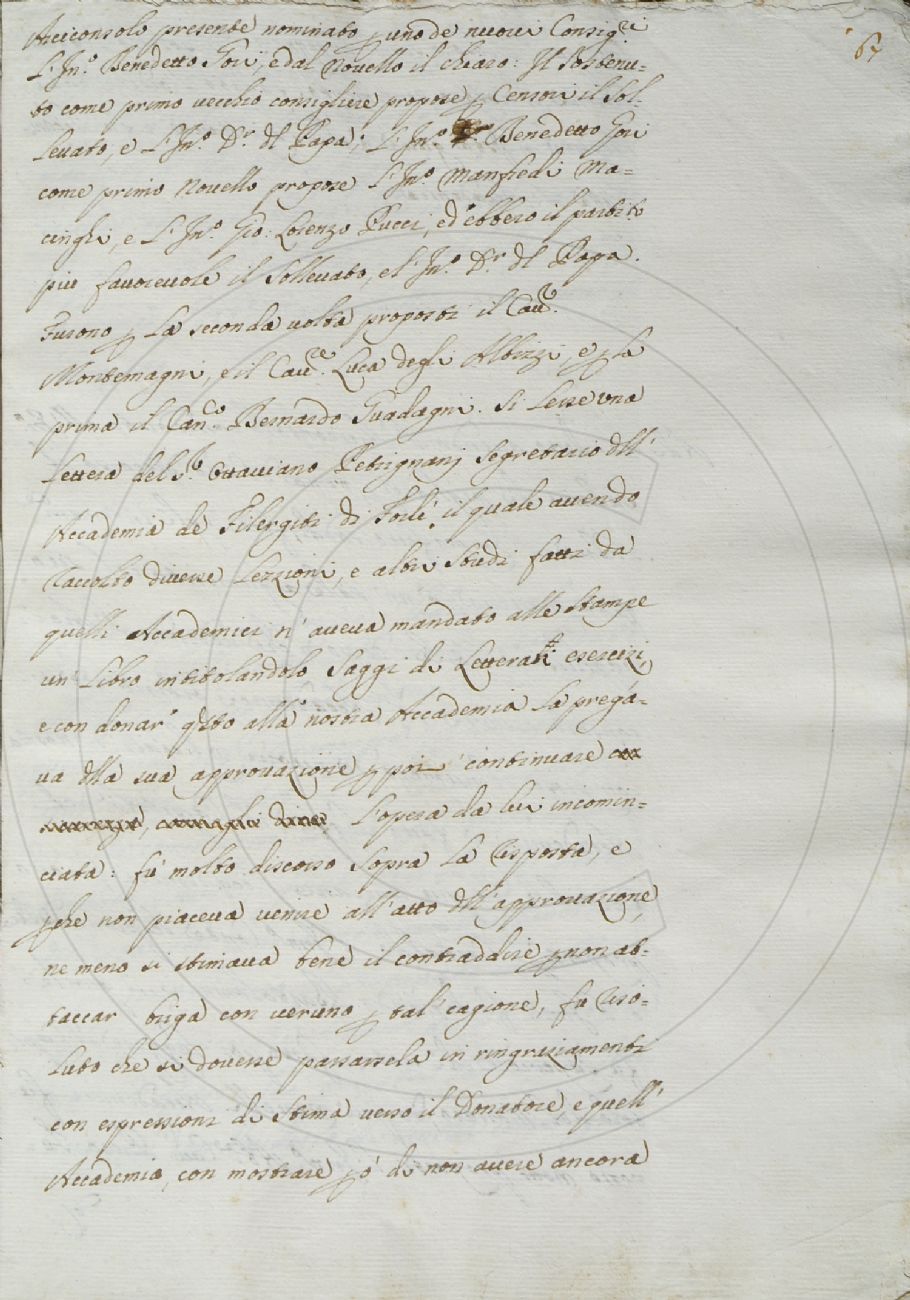 67
Arciconsolo presente nominato ꝑ uno de nuovi Consig.ri
L'Inn.º Benedetto Gori, e dal Novello il chiaro: Il Sostenu-
to come primo vecchio consigliere propose ꝑ Censori il Sol-
levato, e L'Inn.º D.r dl Papa; L'Inn.º Benedetto Gori
come primo Novello propose L'Inn.º Manfredi Ma-
cinghi, e L'Inn.º Gio: Lorenzo Pucci, ed ebbero il partito
piu favorevole il Sollevato, e l'Inn.º D.r dl Papa.
Furono ꝑ La seconda volta proposti il Cav.re
Montemagni, e il Cav.re Luca degli Albizzi, e ꝑ La
prima il Can.co Bernardo Guadagni. Si Lesse una
Lettera del S.r Ottaviano Petrignanj Segretario dll'
Accademia de Filergiti di Forlì, il quale avendo
raccolto diverse Lezzioni, e altri Studi fatti da
quelli Accademici n' aveva mandato alle Stampe
un Libro intitolandolo Saggi di Letterati esercizi,
e con donar' q̃sto alla nostra Accademia La prega-
va dlla sua approvazione ꝑ poi continuare
L'opera da lui incomin-
ciata: fù molto discorso Sopra La risposta, e
ꝑche non piaceva venire all'atto dll'approvazione,
ne meno si stimava bene il contraddire ꝑ non at-
taccar briga con veruno ꝑ tal' cagione, fu riso-
luto che si dovesse passarsela in ringraziamenti
con espressioni di Stima verso il Donatore, e quell'
Accademia, con mostrare ꝑò di non avere ancora